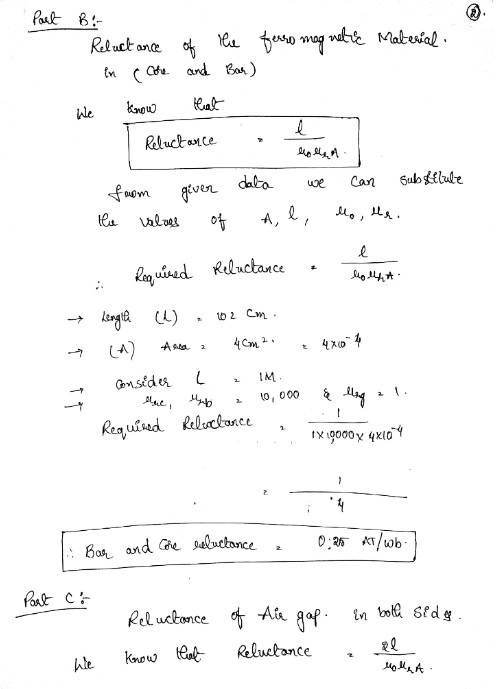 ②.
Part B:-
Reluctance of the ferro magnetic Material.
in (Core and Bar)
We know that
Reluctance = l / μ₀μᵣA.
from given data we can substitute
the values of A, l, μ₀, μᵣ.
∴ Required Reluctance = l / μ₀μᵣA.
→ Length (L) = 102 Cm.
→ (A) Area = 4Cm². = 4x10⁻⁴
→ Consider L = 1M.
→ μᵣc, μᵣb = 10,000 & μᵣg = 1.
Required Reluctance = 1 / 1x10,000x4x10⁻⁴
= 1 / 4
∴ Bar and Core reluctance = 0.25 AT/wb.
Part C:-
Reluctance of Air gap. in both sides.
We know that Reluctance = 2l / μ₀μᵣA.